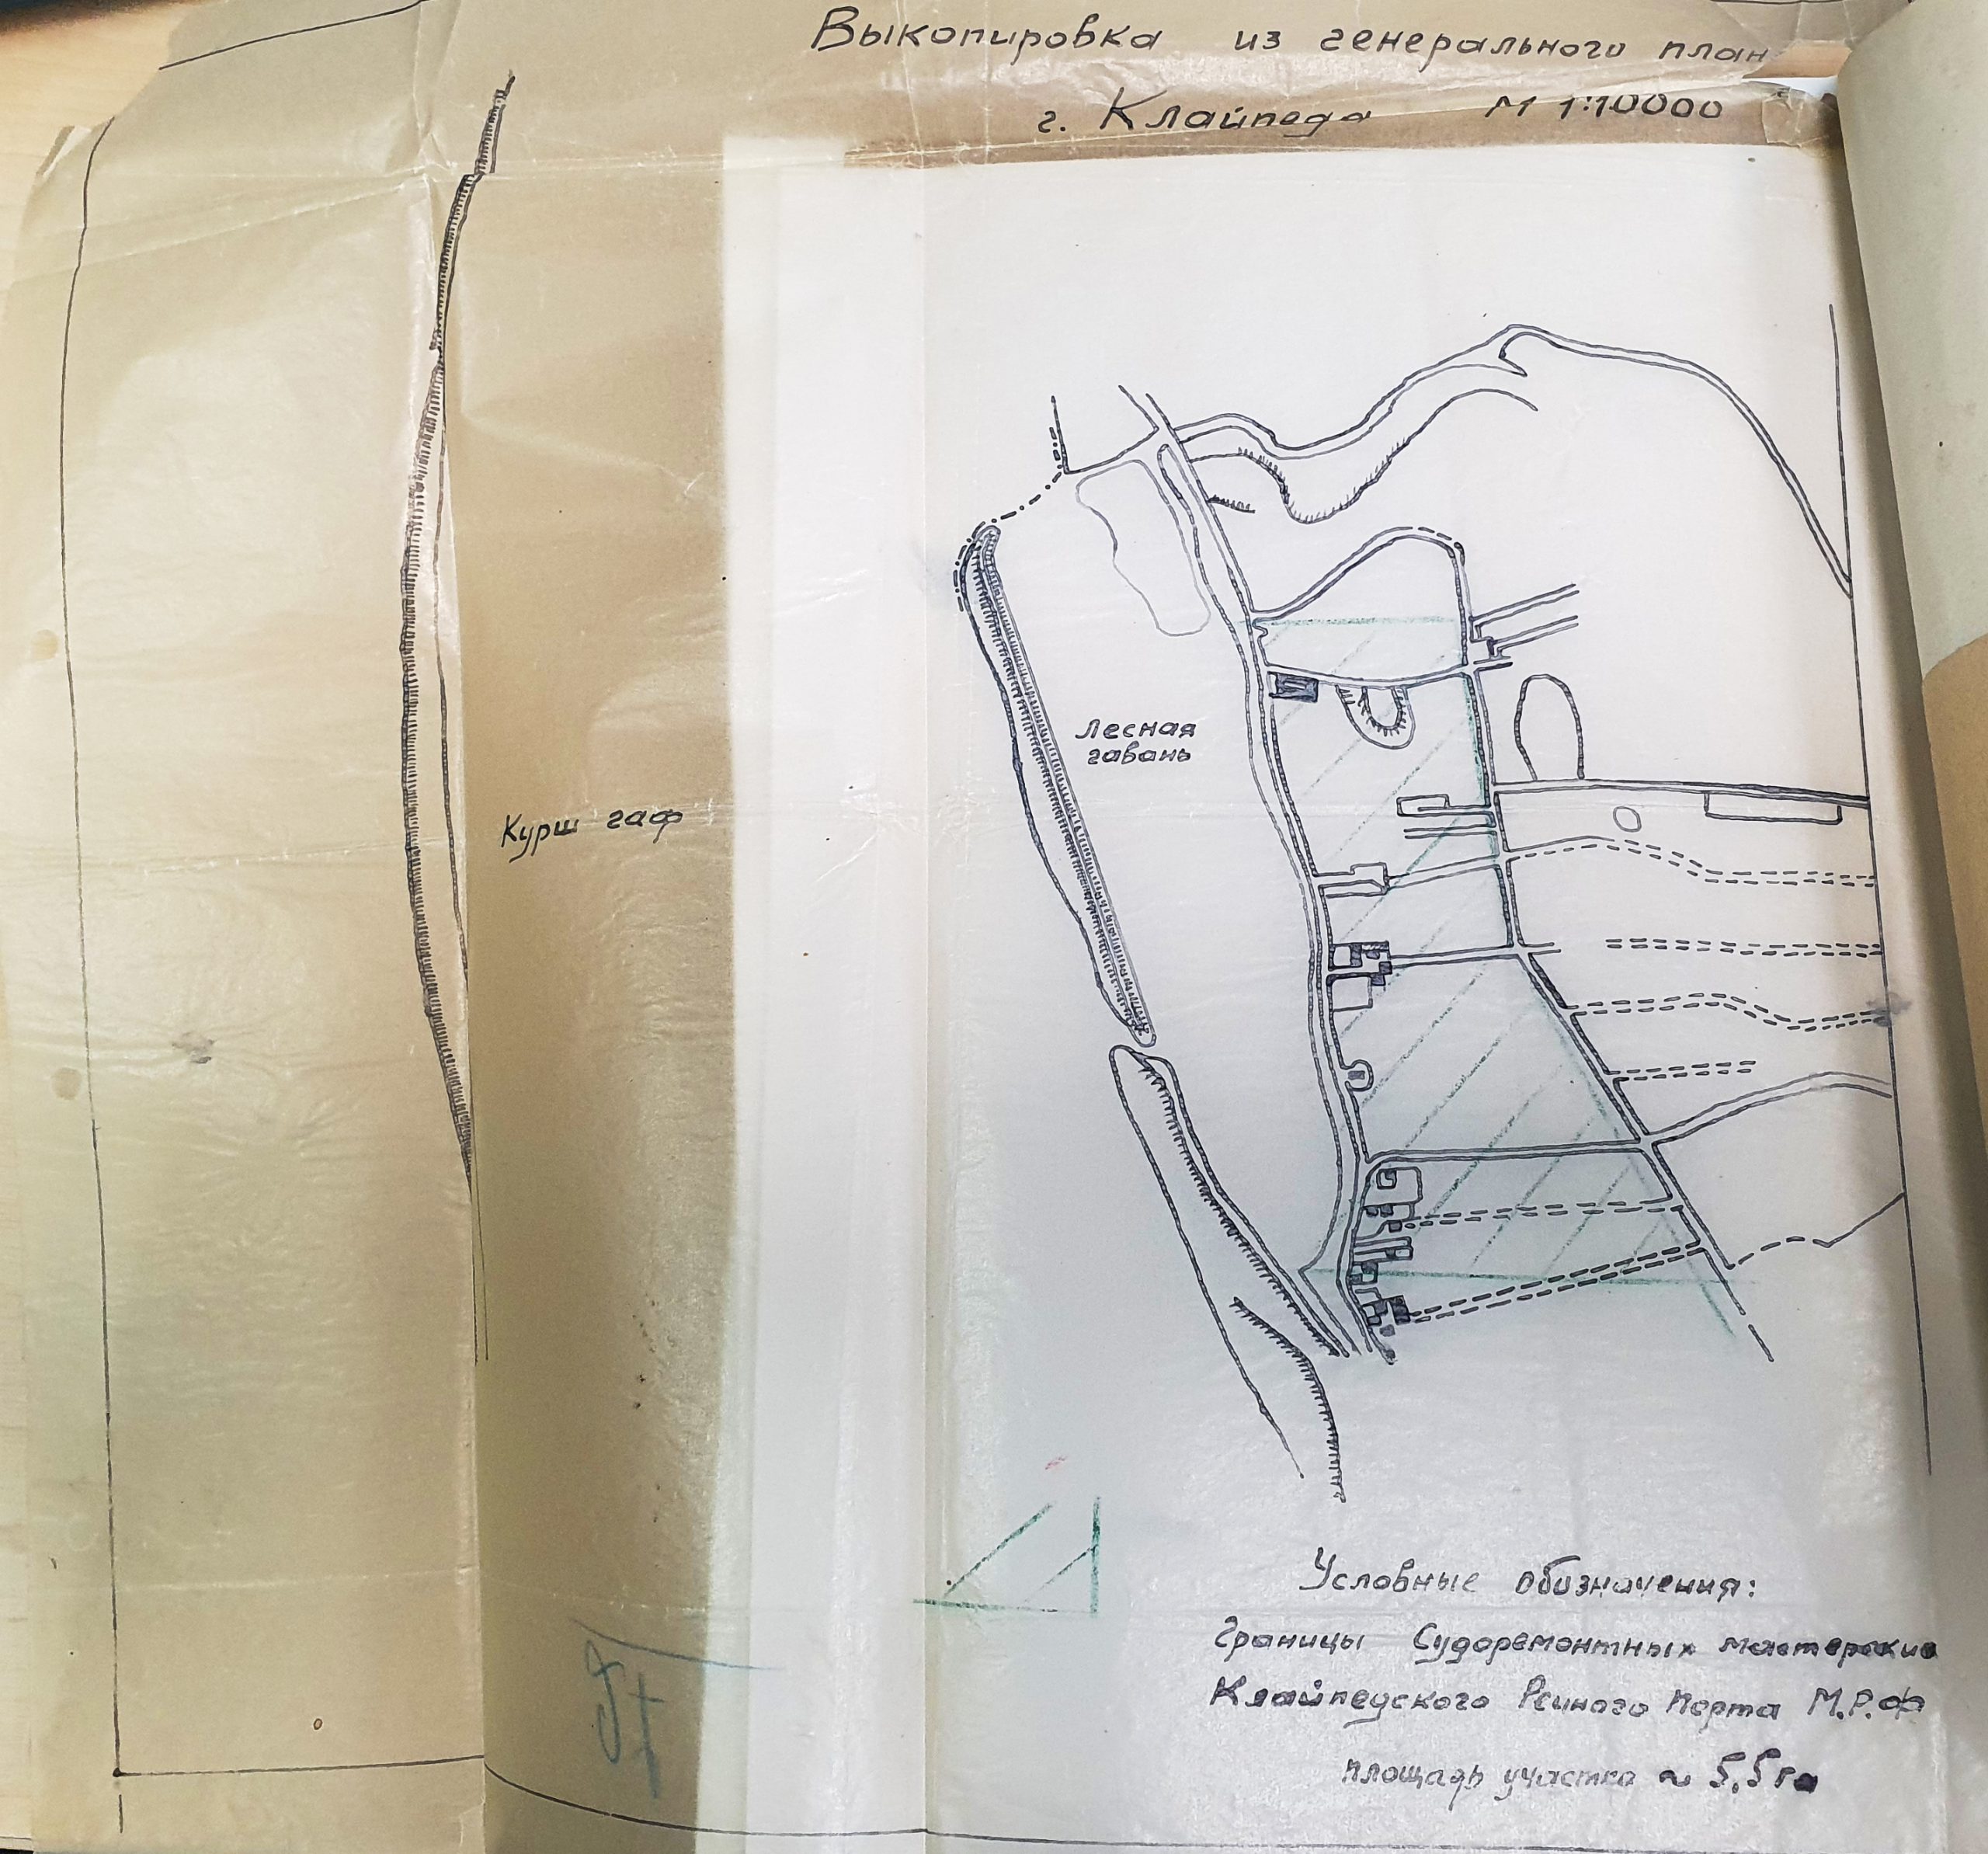 Выкопировка из генерального план
г. Клайпеда М 1:10000
Лесная
гавань
Курш гаф
Условные обозначения:
Границы Судоремонтных мастерских
Клайпедского Речного Порта М.Р.Ф
площадь участка ~ 5,5 га